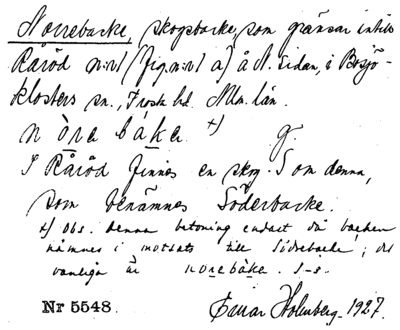 Norrebacke, skogsbacke, som gränsar intill
Råröd n:r 1 (fig. n:r 1 a) å N. sidan, i Bosjö-
klosters sn., Frosta hd. Mlm. län.
nòrebáka +) g.
I Råröd finnes en skog S om denna,
som benämnes Söderbacke.
+) Obs. denna betoning endast då backen
nämnes i motsats till Söderbacke; det
vanliga är norebáke.
Nr 5548. Einar Holmberg. 1927.